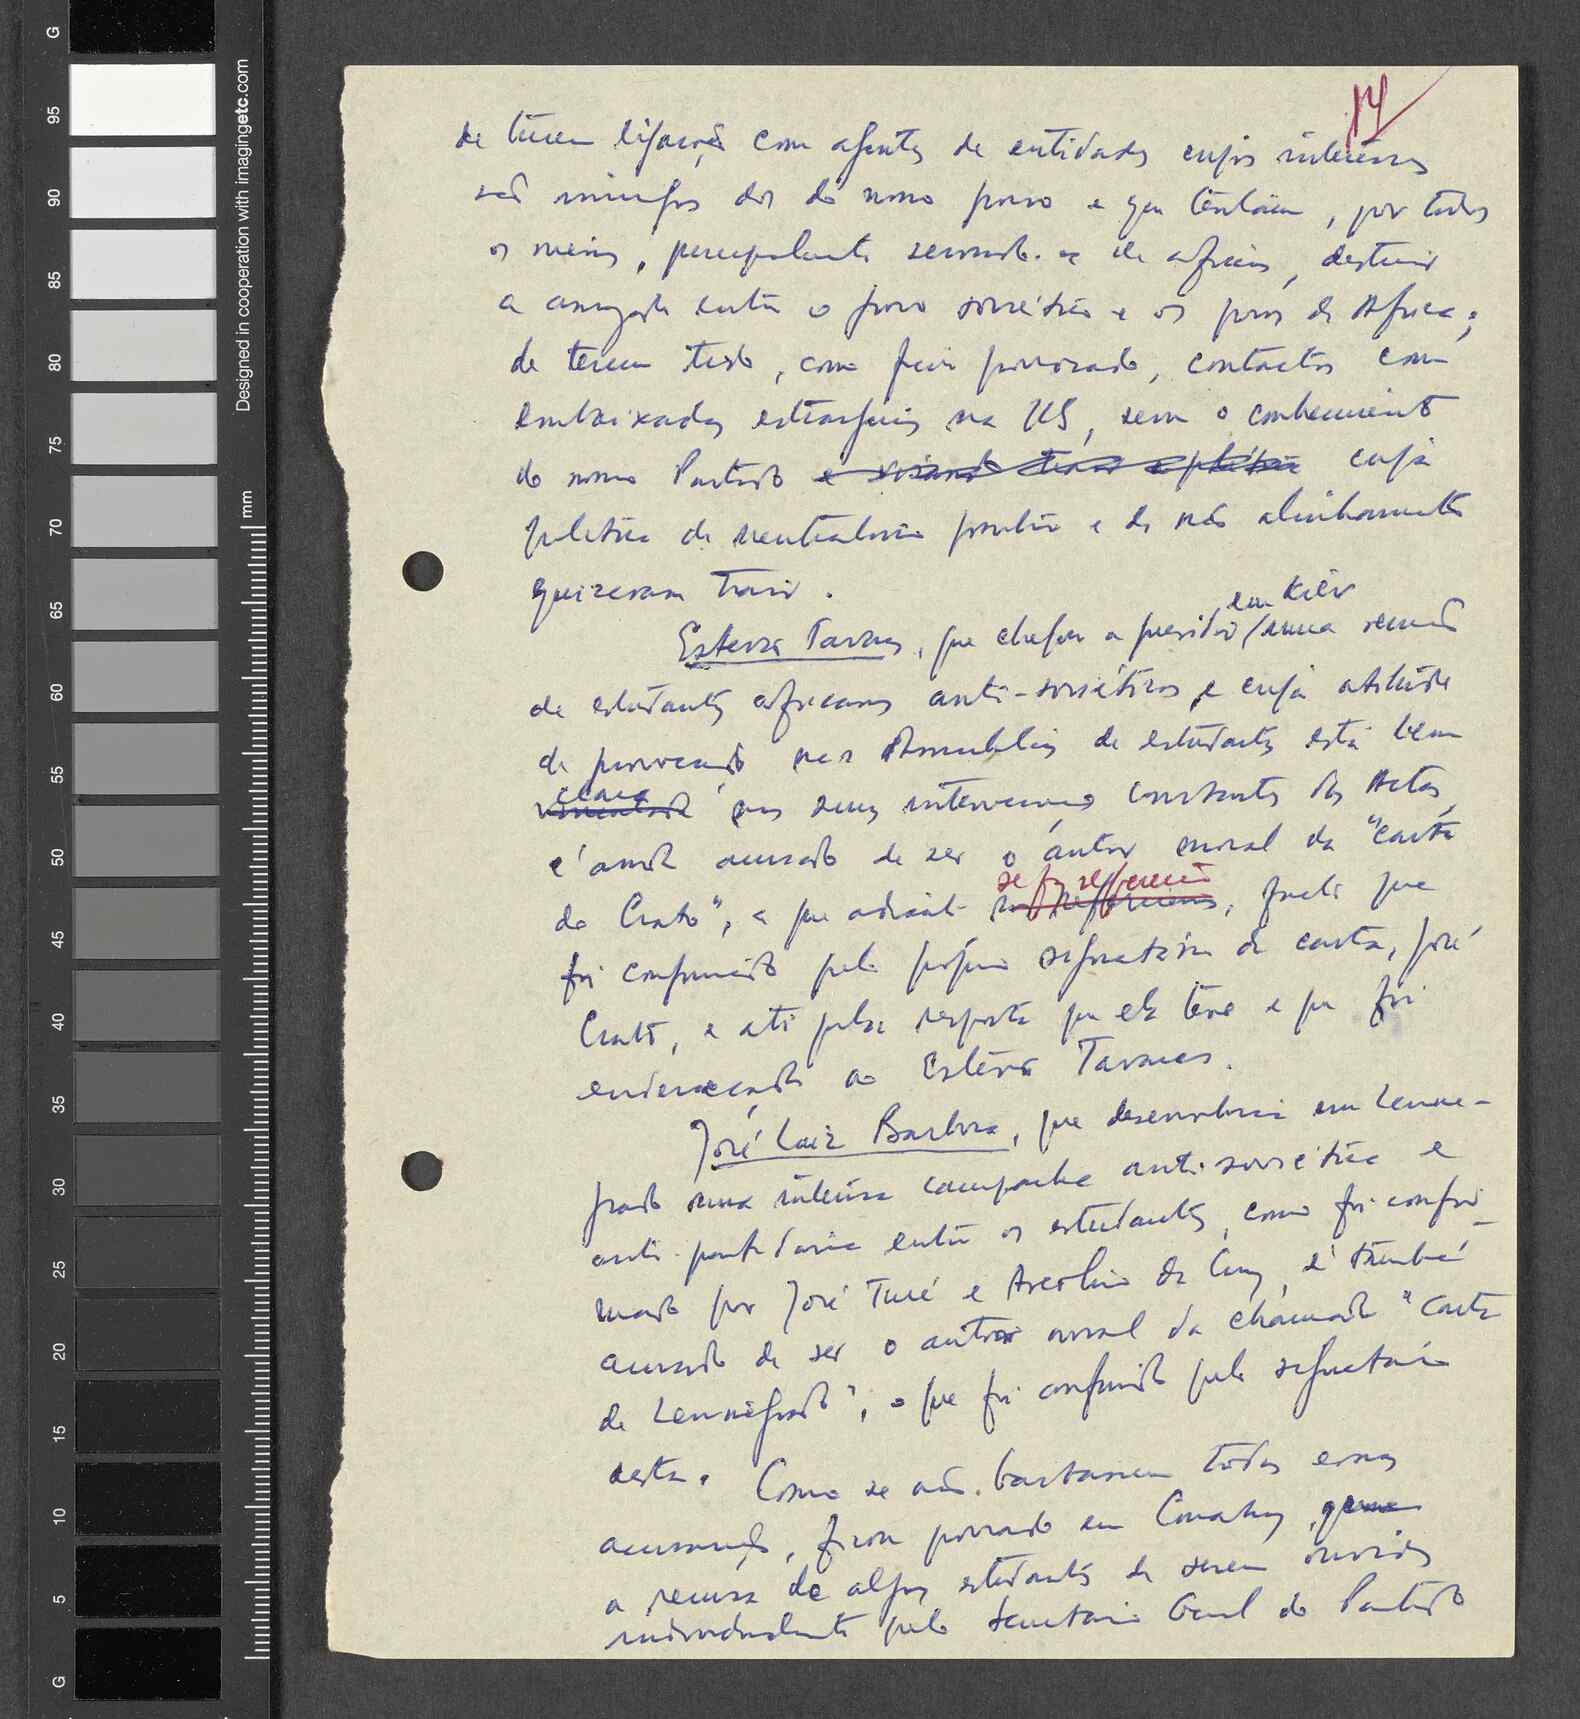 G
95
90
85
80
75
70
65
60
55
50
45
40
35
30
25
20
15
10
5
G
Designed in cooperation with imagingetc.com
mm
14
de terem ligações com agentes de entidades cujos interesses
são inimigos dos do nosso povo e que tentaram, por todos
os meios, de africanos, destruir
a amizade entre o povo soviético e os povos de África;
de terem tido, como ficou provado, contactos com
embaixadas estrangeiras na US, sem o conhecimento
do nosso Partido e visando cuja
política de neutralismo positivo e de não alinhamento
quizeram trair.
em Kiev
Esteves Tavares, que chefiou a presidir uma reunião
de estudantes africanos anti-soviéticos, e cuja atitude
de provocação nas Assembleias de estudantes está bem
clara
nas suas intervenções constantes das Actas,
é ainda acusado de ser o autor moral da "carta
se faz referência
do Crato", a que adiante, facto que
foi confirmado pelo próprio signatário da carta, José
Crato, e até pela resposta que ela teve e que foi
endereçada ao Esteves Tavares.
José Luiz Barbosa, que desenvolveu em Lenine-
grado uma intensa campanha anti-soviética e
anti-partidária entre os estudantes, como foi confir-
mado por José Turé e Avelino da Cruz, é também
acusado de ser o autor moral da chamada "Carta
de Leninegrado", o que foi confirmado pelo signatário
desta. Como se não bastassem todas essas
acusações, ficou provado em Conakry, que
a recusa de alguns estudantes de serem ouvidos
individualmente pelo Secretário Geral do Partido